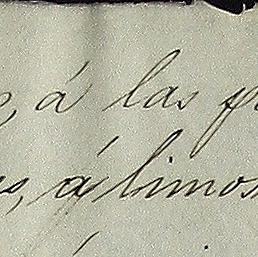 , á las
, á limos